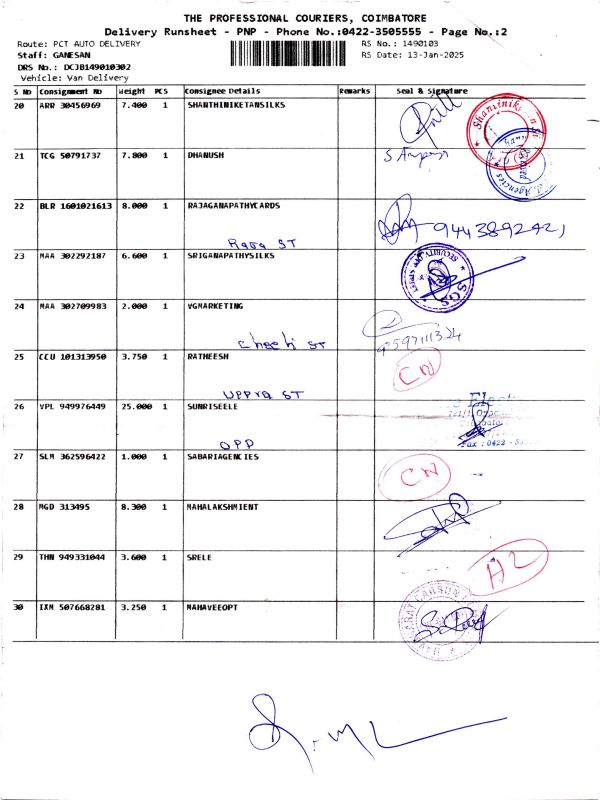 THE PROFESSIONAL COURIERS, COIMBATORE
Delivery Runsheet - PNP - Phone No.:0422-3505555 - Page No.:2
Route: PCT AUTO DELIVERY
RS No.: 1490103
Staff: GANESAN
RS Date: 13-Jan-2025
DRS No.: DCJB149010302
Vehicle: Van Delivery
S No Consignment No Weight PCS Consignee Details Remarks Seal & Signature
20 ARR 30456969 7.400 1 SHANTHINIKETANSILKS
21 TCG 50791737 7.800 1 DHANUSH
22 BLR 1601021613 8.000 1 RAJAGANAPATHYCARDS
9443892421
Raja ST
23 MAA 302292187 6.600 1 SRIGANAPATHYSILKS
SGS
24 MAA 302709983 2.000 1 VGMARKETING
9597111324
25 CCU 101313950 3.750 1 RATHEESH
CN
UPPRA ST
26 VPL 949976449 25.000 1 SUNRISEELE
Fax : 0422 -
OPP
27 SLM 362596422 1.000 1 SABARIAGENCIES
CN
28 MGD 313495 8.300 1 MAHALAKSHMIENT
29 THN 949331044 3.600 1 SRELE
30 IXM 507668281 3.250 1 MAHAVEEOPT